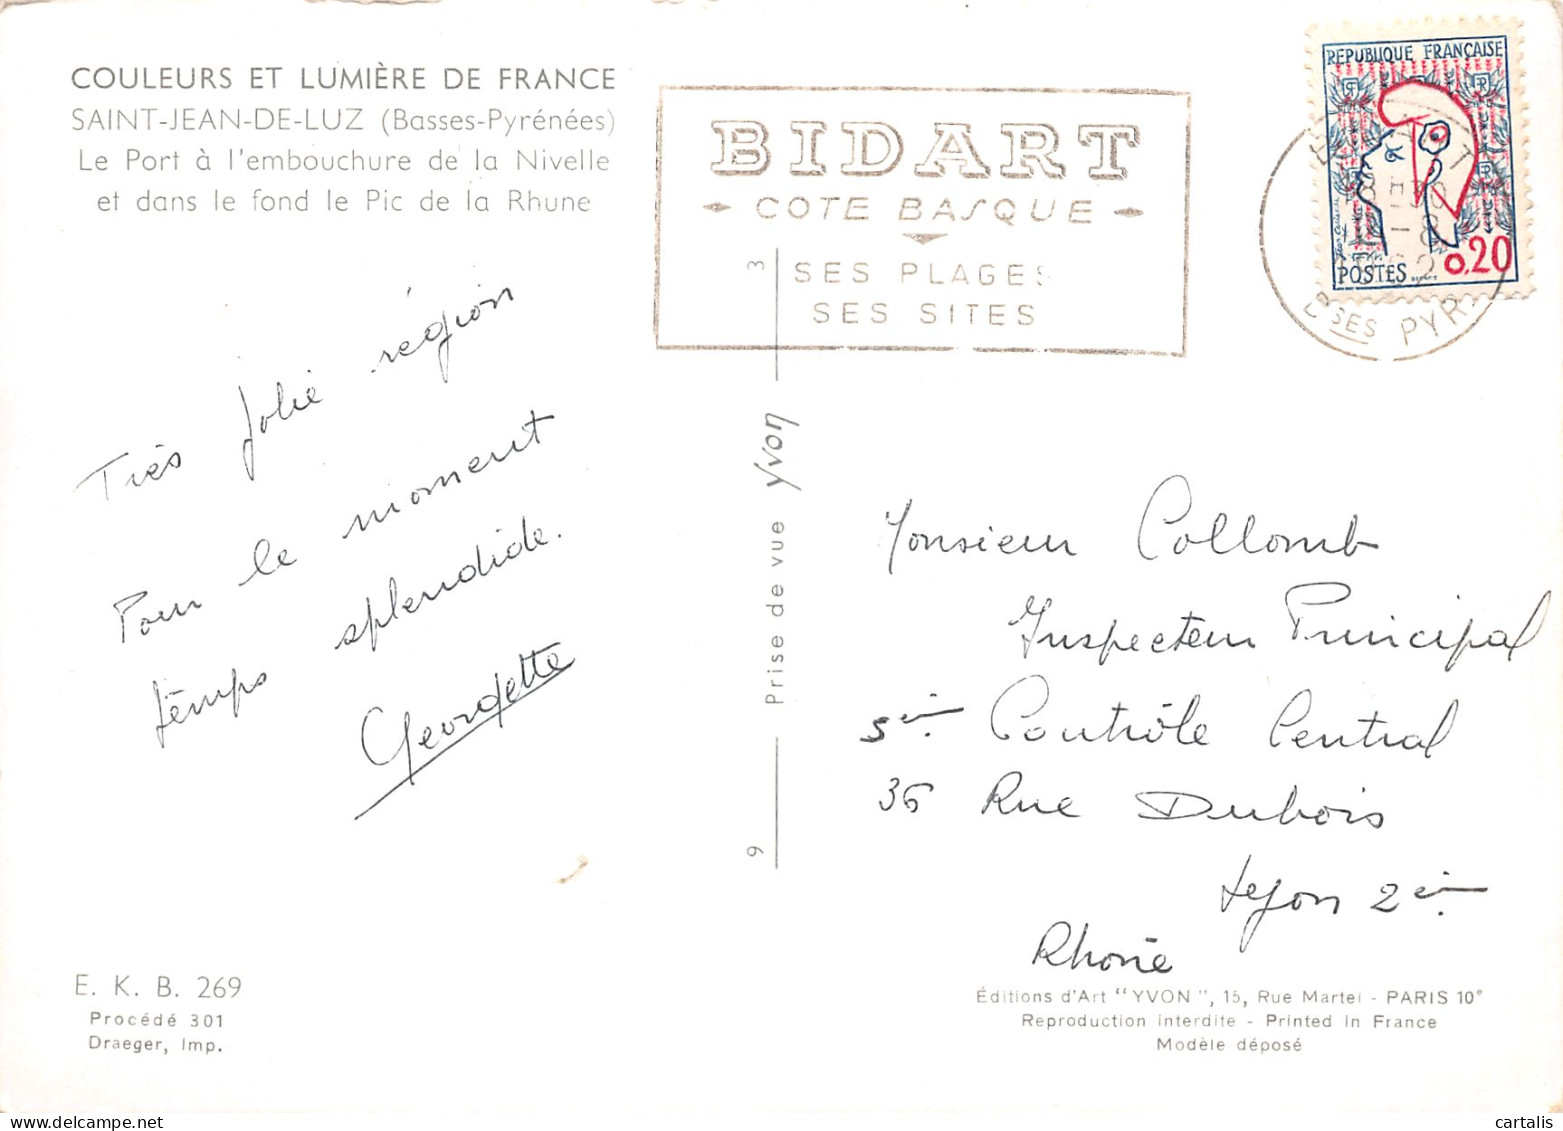 COULEURS ET LUMIÈRE DE FRANCE
SAINT-JEAN-DE-LUZ (Basses-Pyrénées)
Le Port à l'embouchure de la Nivelle
et dans le fond le Pic de la Rhune
Très jolie région
Pour le moment
temps splendide.
Georgette
E. K. B. 269
Procédé 301
Draeger, Imp.
BIDART
COTE BASQUE
SES PLAGES
SES SITES
3
Prise de vue Yvon
9
REPUBLIQUE FRANÇAISE
POSTES 0,20
BSES PYR
Monsieur Collomb
Inspecteur Principal
5èm Contrôle Central
36 Rue Dubois
Lyon 2èm
Rhône
Éditions d'Art "YVON", 15, Rue Martel - PARIS 10e
Reproduction interdite - Printed in France
Modèle déposé
cartalis